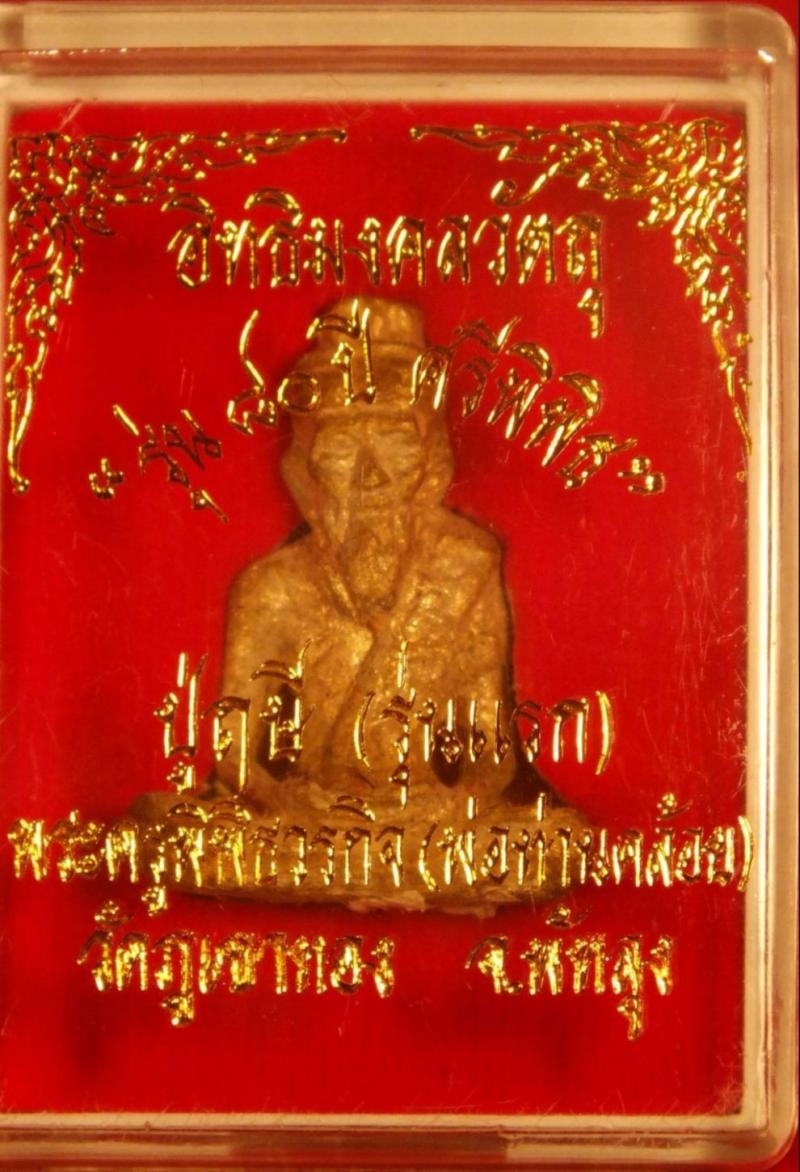 อิทธิมงคลวัตถุ
"รุ่น ๘๐ ปี ศรีพิพิธ"
ปู่ฤๅษี (รุ่นแรก)
พระครูพิพิธวรกิจ (พ่อท่านคล้อย)
วัดภูเขาทอง จ.พัทลุง